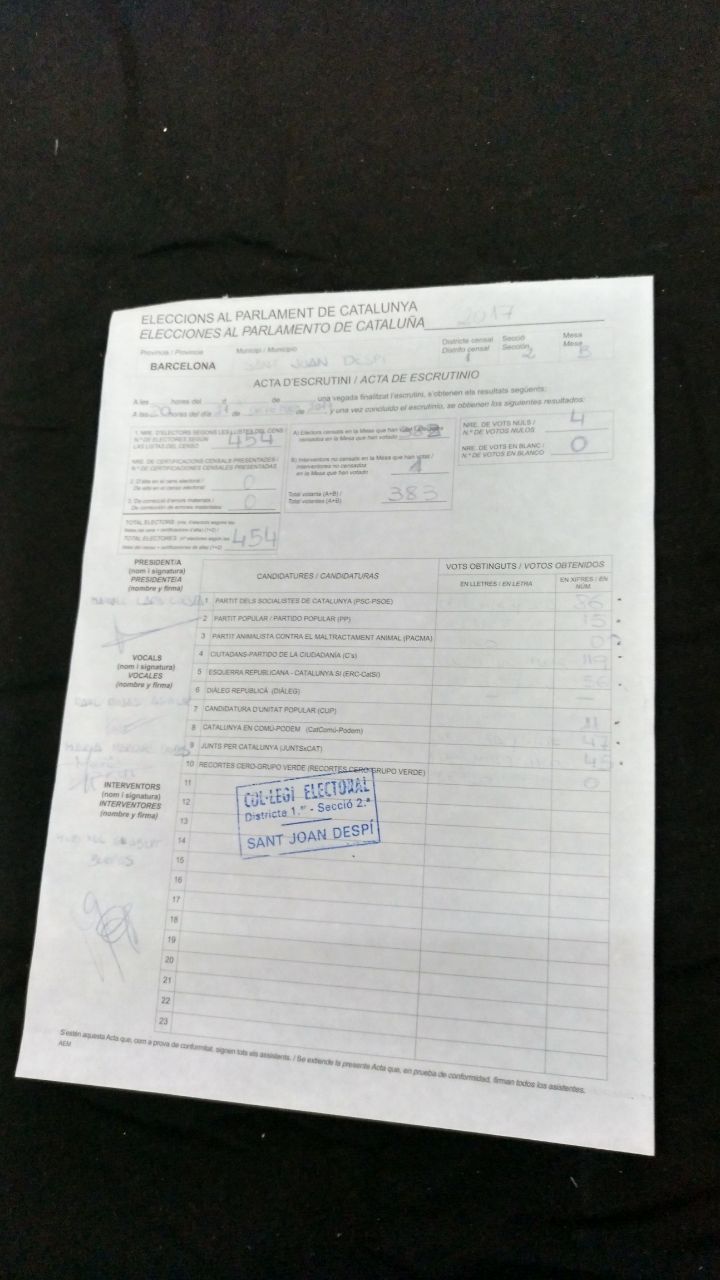 ELECCIONS AL PARLAMENT DE CATALUNYA
ELECCIONES AL PARLAMENTO DE CATALUÑA 2017
Provincia / Provincia Municipi / Municipio Districte censal Distrito censal Secció Sección Mesa Mesa
BARCELONA SANT JOAN DESPÍ 1 2 B
ACTA D'ESCRUTINI / ACTA DE ESCRUTINIO
A les hores del d de de una vegada finalitzat l'escrutini, s'obtenen els resultats següents:
A las 20 horas del día 21 de de y una vez concluido el escrutinio, se obtienen los siguientes resultados:
1. NRE. D'ELECTORS SEGONS LES LLISTES DEL CENS /
N.º DE ELECTORES SEGÚN
LAS LISTAS DEL CENSO 454
NRE. DE CERTIFICACIONS CENSALS PRESENTADES /
N.º DE CERTIFICACIONES CENSALES PRESENTADAS
2. D'alta en el cens electoral /
De alta en el censo electoral 0
3. De correcció d'errors materials /
De corrección de errores materiales 0
TOTAL ELECTORS
TOTAL ELECTORES 454
A) Electors censats en la Mesa que han votat /
censados en la Mesa que han votado
B) Interventors no censats en la Mesa que han votat /
Interventores no censados
en la Mesa que han votado 1
Total votants (A+B) /
Total votantes (A+B) 383
NRE. DE VOTS NULS /
N.º DE VOTOS NULOS 4
NRE. DE VOTS EN BLANC /
N.º DE VOTOS EN BLANCO 0
PRESIDENT/A
(nom i signatura)
PRESIDENTE/A
(nombre y firma)
VOCALS
(nom i signatura)
VOCALES
(nombre y firma)
INTERVENTORS
(nom i signatura)
INTERVENTORES
(nombre y firma)
CANDIDATURES / CANDIDATURAS
VOTS OBTINGUTS / VOTOS OBTENIDOS
EN LLETRES / EN LETRA EN XIFRES / EN NÚM.
1 PARTIT DELS SOCIALISTES DE CATALUNYA (PSC-PSOE)
2 PARTIT POPULAR / PARTIDO POPULAR (PP) 15
3 PARTIT ANIMALISTA CONTRA EL MALTRACTAMENT ANIMAL (PACMA) 0
4 CIUTADANS-PARTIDO DE LA CIUDADANÍA (C's) 119
5 ESQUERRA REPUBLICANA - CATALUNYA SÍ (ERC-CatSí) 56
6 DIÀLEG REPUBLICÀ (DIÀLEG) —
7 CANDIDATURA D'UNITAT POPULAR (CUP) 11
8 CATALUNYA EN COMÚ-PODEM (CatComú-Podem) 47
9 JUNTS PER CATALUNYA (JUNTSxCAT) 45
10 RECORTES CERO-GRUPO VERDE (RECORTES CERO-GRUPO VERDE) 0
11
12
13
14
15
16
17
18
19
20
21
22
23
COL·LEGI ELECTORAL
Districte 1.er - Secció 2.ª
SANT JOAN DESPÍ
S'estén aquesta Acta que, com a prova de conformitat, signen tots els assistents. / Se extiende la presente Acta que, en prueba de conformidad, firman todos los asistentes.
AEM